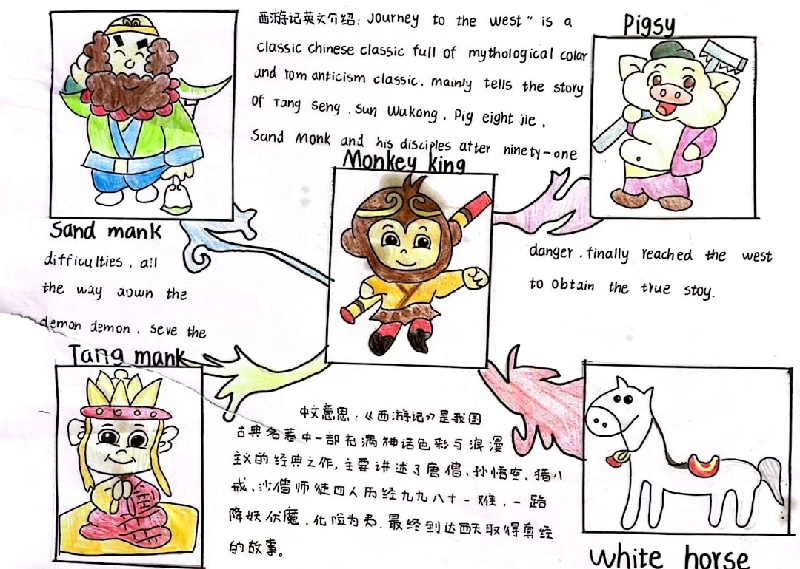 西游记英文介绍：Journey to the west" is a
classic chinese classic full of mythological color
and romanticism classic. mainly tells the story
of Tang Seng. Sun Wukong, Pig eight jie,
Sand Monk and his disciples after ninety-one
Pigsy
Monkey king
Sand mank
difficulties, all
the way down the
demon demon. seve the
danger. finally reached the west
to obtain the true stoy.
Tang mank
中文意思：《西游记》是我国
古典名著中一部充满神话色彩与浪漫
主义的经典之作，主要讲述了唐僧、孙悟空、猪八
戒、沙僧师徒四人历经九九八十一难，一路
降妖伏魔、化险为夷，最终到达西天取得真经
的故事。
white horse